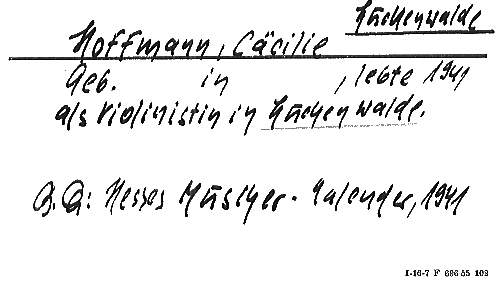 Luckenwalde
Hoffmann, Cäcilie
Geb. in , lebte 1941
als Violinistin in Luckenwalde.
B.Q: Hesses Musiker-Kalender, 1941
I-16-7 F 696 55 102